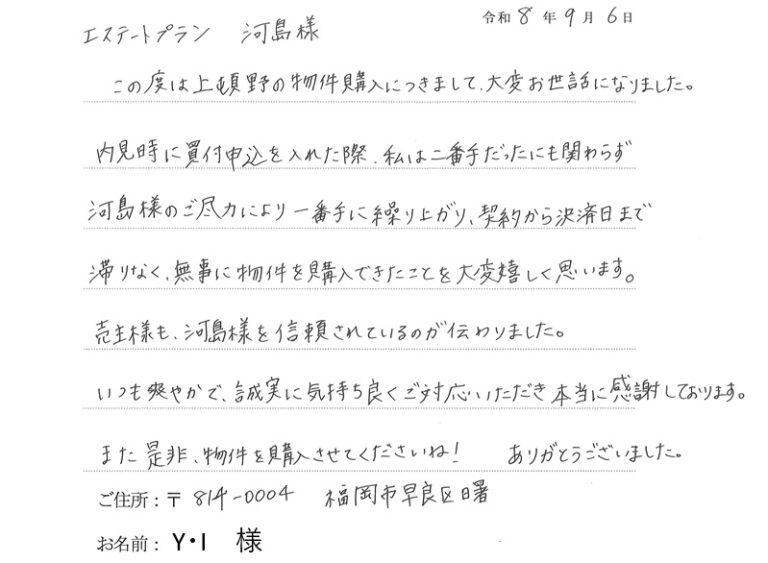 令和 8 年 9 月 6 日
エステートプラン 河島様
この度は上頓野の物件購入につきまして、大変お世話になりました。
内見時に買付申込を入れた際、私は二番手だったにも関わらず
河島様のご尽力により一番手に繰り上がり、契約から決済日まで
滞りなく、無事に物件を購入できたことを大変嬉しく思います。
売主様も、河島様を信頼されているのが伝わりました。
いつも爽やかで、誠実に気持ち良くご対応いただき本当に感謝しております。
また是非、物件を購入させてくださいね! ありがとうございました。
ご住所:〒 814-0004 福岡市早良区曙
お名前: Y・I 様